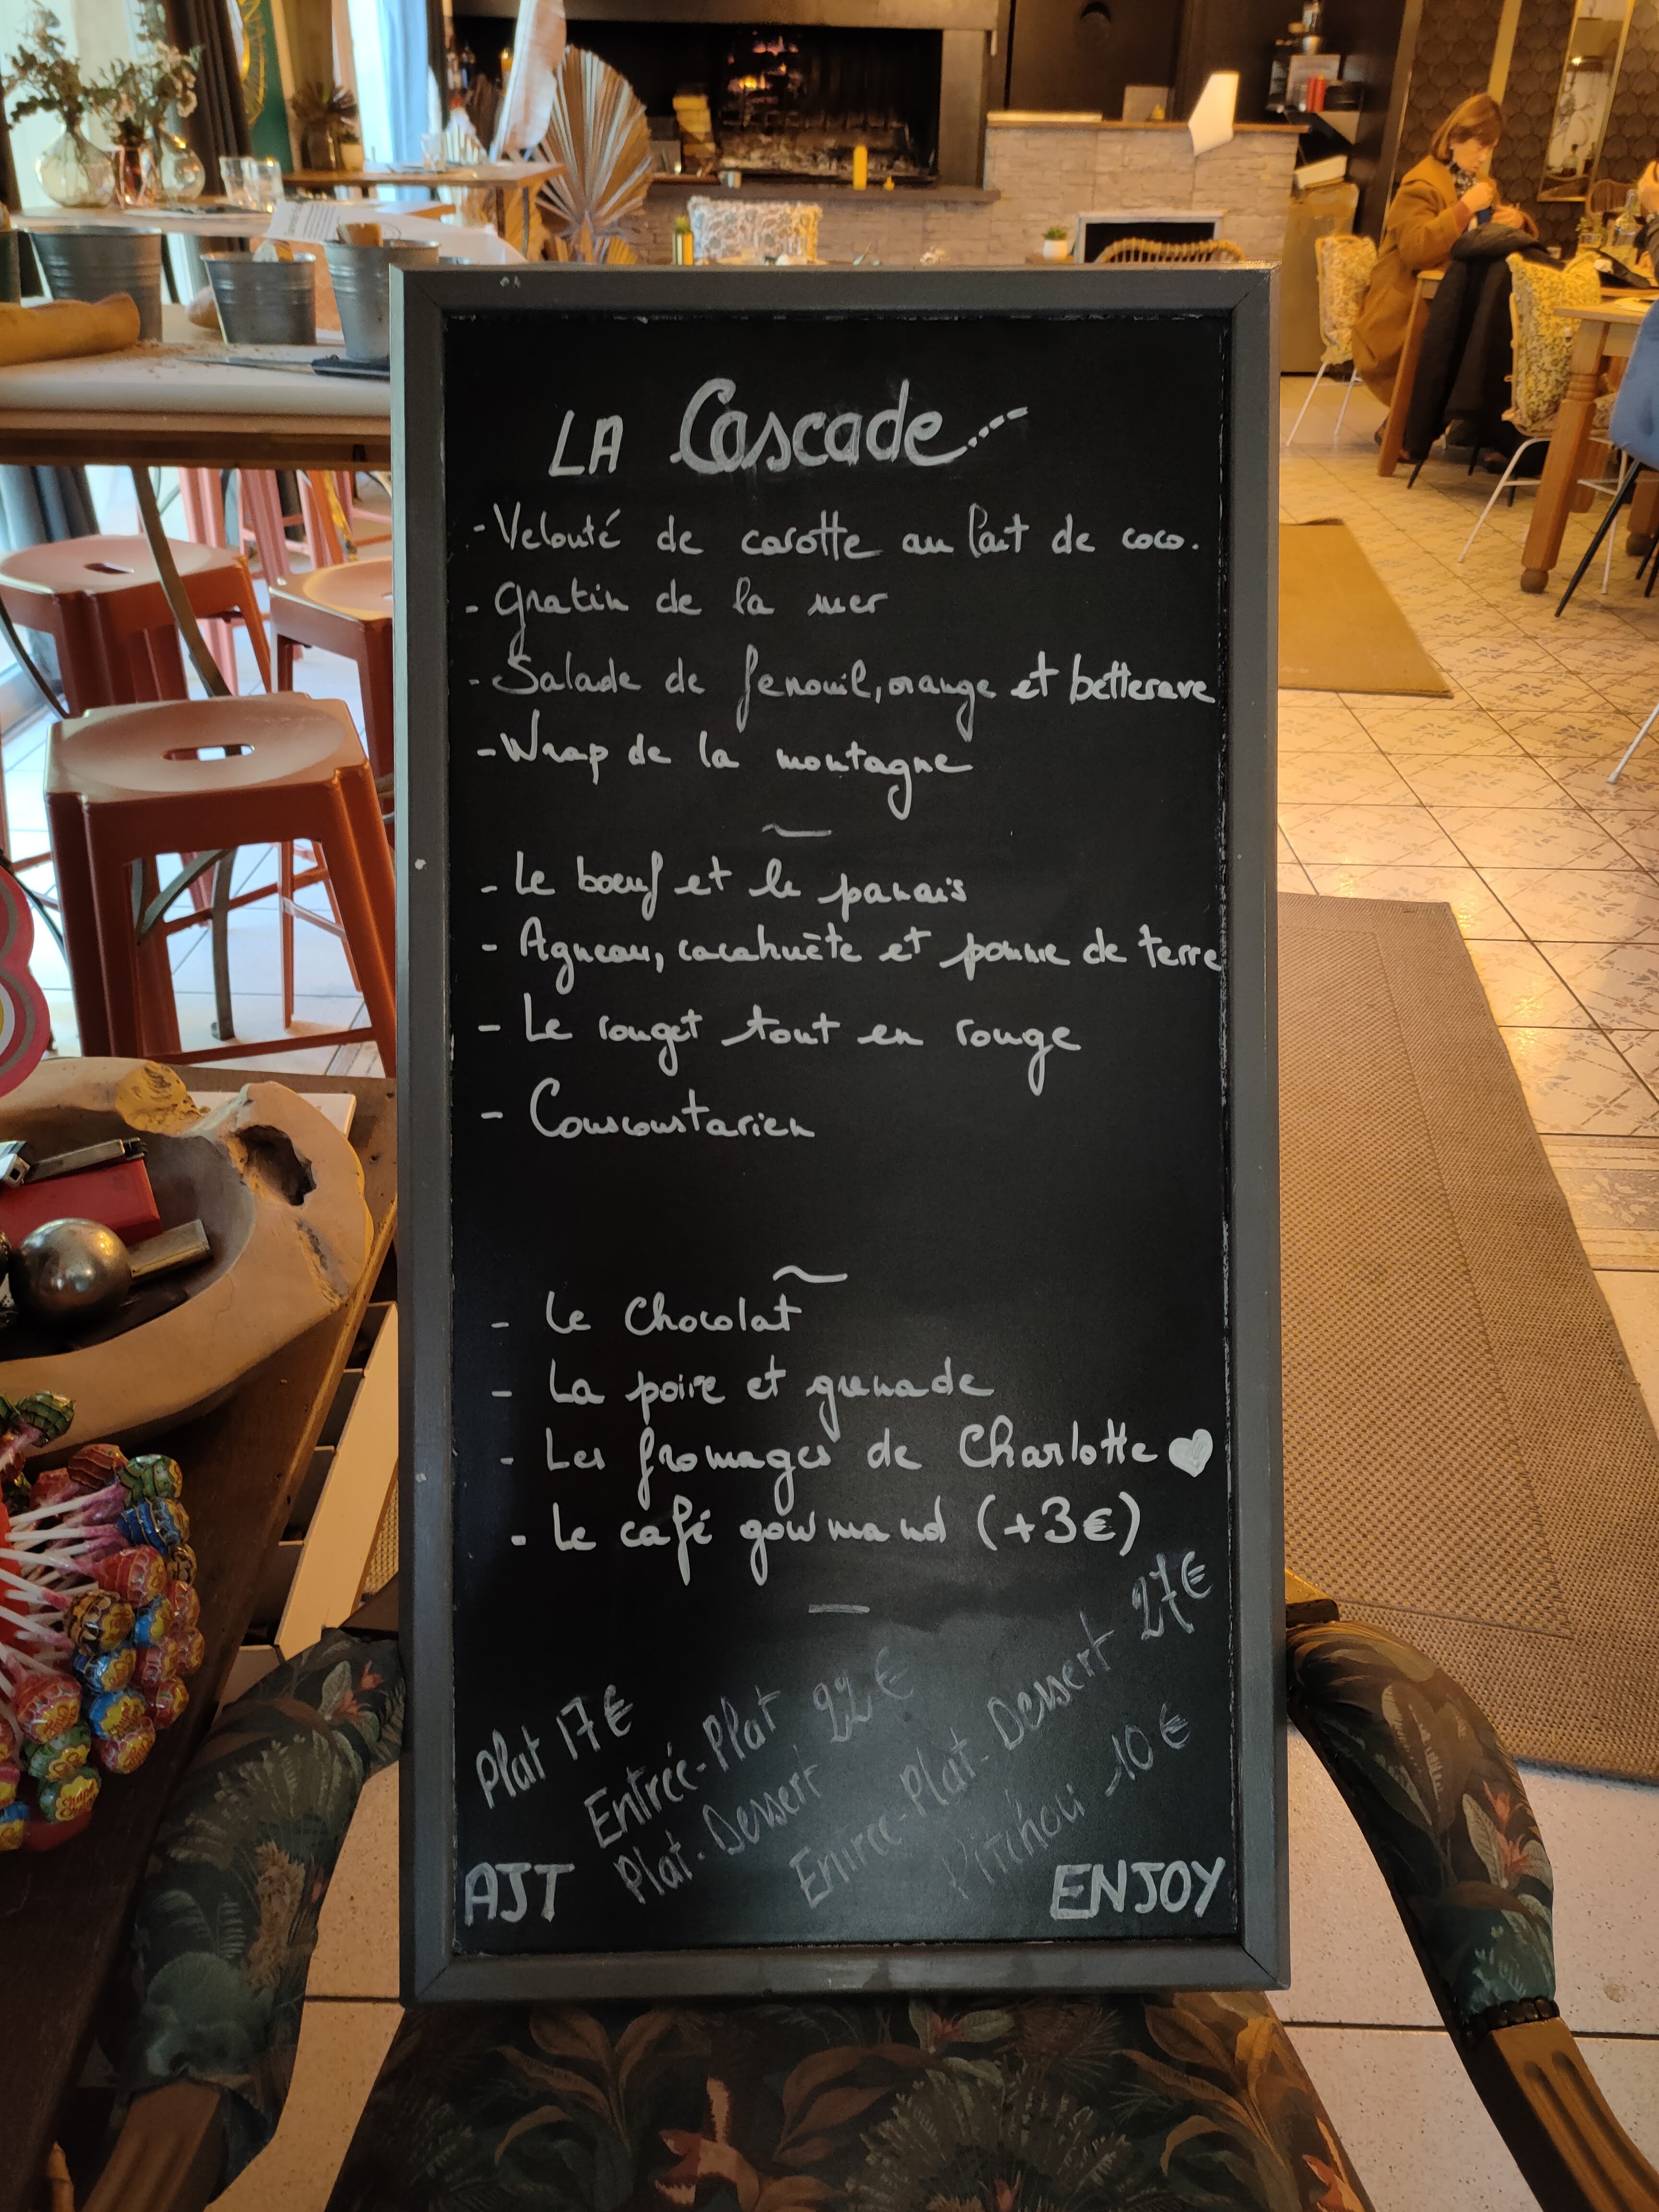 LA Cascade
- Velouté de carotte au lait de coco.
- Gratin de la mer
- Salade de fenouil, orange et betterave
- Wrap de la montagne
~
- Le bœuf et le panais
- Agneau, cacahuète et pomme de terre
- Le rouget tout en rouge
- Couscoustarien
~
- Le Chocolat
- La poire et grenade
- Les fromages de Charlotte ♥
- Le café gourmand (+3€)
—
Plat 17€
Entrée-Plat 22€
Plat-Dessert
Entrée-Plat-Dessert 27€
Pitchou 10€
AJT
ENJOY